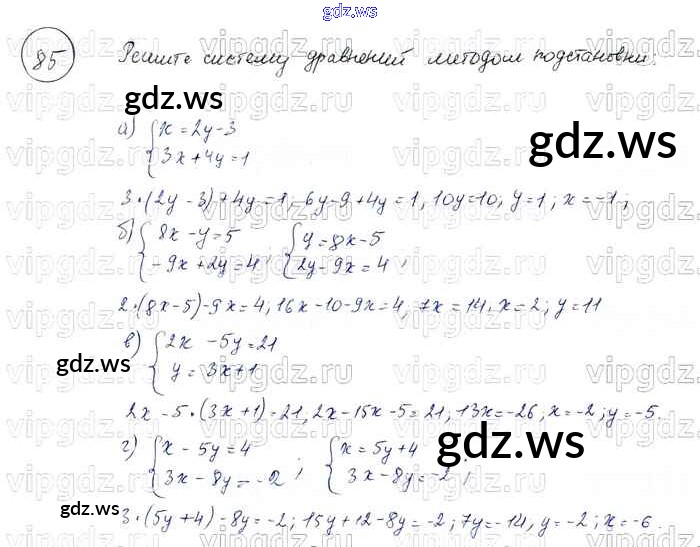 gdz.ws
85 Решите систему уравнений методом подстановки:
gdz.ws
а) { x = 2y - 3
3x + 4y = 1
gdz.ws
3·(2y - 3) + 4y = 1, 6y - 9 + 4y = 1, 10y = 10, y = 1; x = -1;
б) { 8x - y = 5 { y = 8x - 5
-9x + 2y = 4; 2y - 9x = 4,
2·(8x - 5) - 9x = 4, 16x - 10 - 9x = 4, 7x = 14. x = 2; y = 11
в) { 2x - 5y = 21
y = 3x + 1
gdz.ws
2x - 5·(3x + 1) = 21, 2x - 15x - 5 = 21, 13x = -26; x = -2; y = -5.
г) { x - 5y = 4 ; { x = 5y + 4
3x - 8y = -2 3x - 8y = -2;
gdz.ws
gdz.ws
3·(5y + 4) = 8y = -2; 15y + 12 - 8y = -2; 7y = -14, y = -2; x = -6.